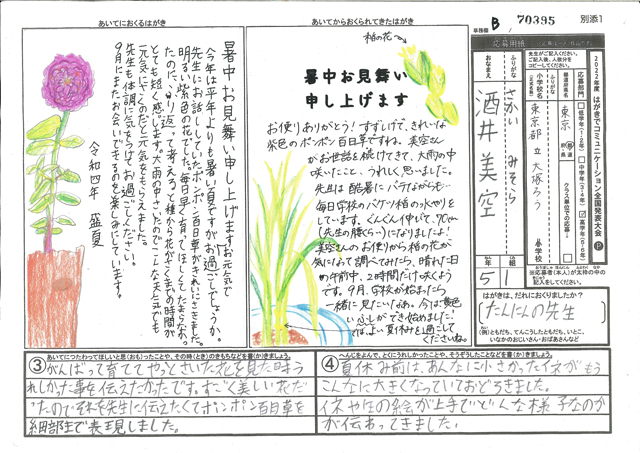 事務欄 B 70395 別添1
あいてにおくるはがき
暑中お見舞い申し上げます
お元気でお過ごしでしょうか。
今年は平年よりも暑い夏ですが
先生にお話ししていたポンポン百日草がきれいにさきました。
明るい紫色の花です。
令和四年 盛夏
あいてからおくられてきたはがき
稲の花
暑中お見舞い
申し上げます
お便りありがとう！すずしげで、きれいな
紫色のポンポン百日草ですね。美空さん
がお世話を続けてきて、大雨の中
咲いたこと、うれしく思いました。
先生は酷暑にバテながらも…
毎日学校のバケツ稲の水やりを
しています。ぐんぐん伸びて、70cm
(先生の腰ぐらい)になりましたよ！
美空さんのお便りから稲の花が
気になって調べてみたら、晴れた日
の午前中、2時間だけ咲くよう
です。9月、学校が始まったら
一緒に見たいなぁ。今は黄色
いふしができ始めました！
では、よい夏休みを過ごして
くださいね。
応募用紙
2022年度 はがきでコミュニケーション全国発表大会
応募部門
低学年(1・2年)
中学年(3・4年)
高学年(5・6年)
都道府県名
東京
小学校名
東京都立大塚ろう学校
クラス単位での応募
ふりがな
さかい みそら
おなまえ
酒井美空
5年
1組
はがきは、だれにおくりましたか？
(たんにんの先生)
(例)ともだち、てんこうしたともだち、いとこ、
いなかのおじいさん・おばあさんなど
③あいてにつたわってほしいと思(おも)ったことや、その時(とき)のきもちなどを書(か)きましょう。
がんばって育ててやっとさいた花を見た時う
れしかった事を伝えたかったです。すごく美しい花だ
ったのでそれを先生に伝えたくてポンポン百日草を
細部まで表現しました。
④へんじをよんで、とくにうれしかったことや、そうぞうしたことなどを書(か)きましょう。
夏休み前は、あんなに小さかったイネがもう
こんなに大きくなっていておどろきました。
イネや生の絵が上手でどんな様子なのか
が伝わってきました。